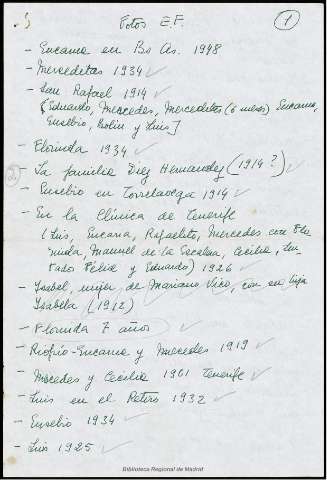 Fotos E.F.
1
- Encarna en Bs As. 1948
- Merceditas 1934
- San Rafael 1914
[Eduardo, Mercedes, Merceditas (6 meses) Encarna,
Eusebio, y Luis]
- Florinda 1934
- La familia Diez Hernandez (1914?)
- Eusebio en Torrelavega 1914
- En la Clinica de Tenerife
(Luis, Encarna, Rafaelito, Mercedes con Flo-
rinda, Manuel de la Escalera, Cecilia, sen-
tados Félix y Eduardo) 1926
- Isabel, mujer de Mariano Vico, con su hija
Isabela (1912)
- Florinda 7 años
- Riofrío-Encarna y Mercedes 1919
- Mercedes y Cecilia 1961 Tenerife
- Luis en el Retiro 1932
- Eusebio 1934
- Luis 1925
Biblioteca Regional de Madrid